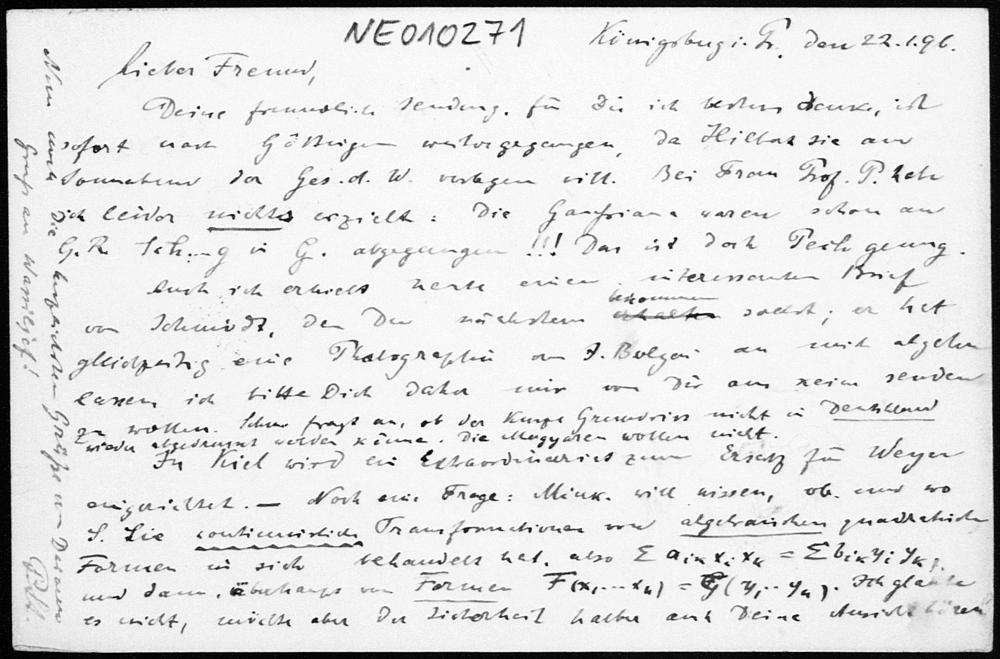 NE010271
Königsberg i. Pr. den 22.1.96.
Lieber Freund,
Deine freundliche Sendung, für die ich bestens danke, ist
sofort nach Göttingen weitergegangen, da Hilbert sie am
Sonnabend der Ges. d. W. vorlegen will. Bei Frau Prof. P. habe
ich leider nichts erzielt: Die Gaussiana waren schon an
G. R. Sch..g in G. abgegangen!!! Das ist doch Pech genug.
Auch ich erhielt heute einen interessanten Brief
von Schmidt, den Du nächstens erhalten bekommen sollst; er hat
gleichzeitig eine Photographie von J. Bolyai an mich abgehn
lassen, ich bitte Dich daher mir von Dir aus keine senden
zu wollen. Schm. fragt an, ob der Kurze Grundriss nicht in Deutschland
wieder abgedruckt werden könne. Die Magyaren wollen nicht.
In Kiel wird ein Extraordinariat zum Ersatz für Weyer
eingerichtet. – Noch eine Frage: Mink. will wissen, ob und wo
S. Lie continuierliche Transformationen von algebraischen quadratischen
Formen in sich behandelt hat, also Σ aᵢₖxᵢxₖ = Σ bᵢₖyᵢyₖ;
und dann, überhaupt von Formen F(x₁...xₙ) = G(y₁...yₙ). Ich glaube
es nicht, möchte aber der Sicherheit halber auch Deine Ansicht hören
Nun noch die herzlichsten Grüße von Deinem
Gruß an Wassiljef!